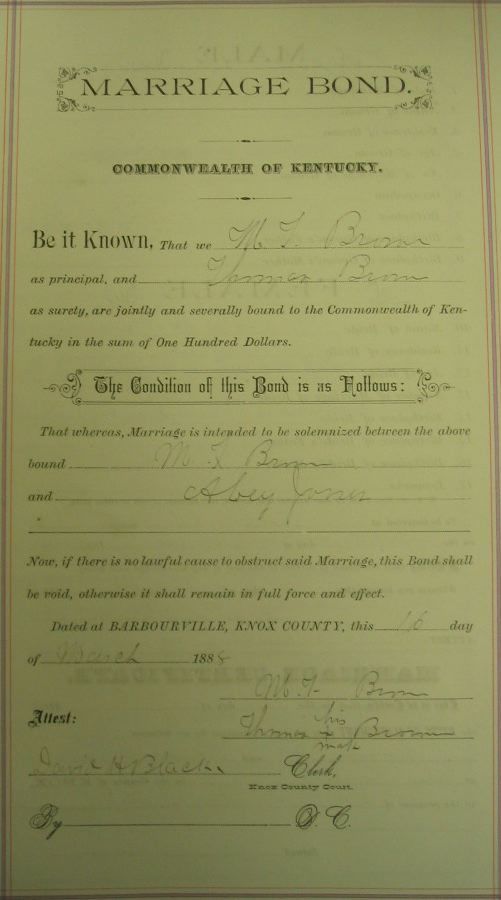 MARRIAGE BOND.
COMMONWEALTH OF KENTUCKY.
Be it Known, That we M. F. Brown
as principal, and Thomas Brown
as surety, are jointly and severally bound to the Commonwealth of Ken-
tucky in the sum of One Hundred Dollars.
The Condition of this Bond is as Follows:
That whereas, Marriage is intended to be solemnized between the above
bound M. F. Brown
and Abey Jones
Now, if there is no lawful cause to obstruct said Marriage, this Bond shall
be void, otherwise it shall remain in full force and effect.
Dated at BARBOURVILLE, KNOX COUNTY, this 16 day
of March 1888
M. F. Brown
Attest: Thomas his x mark Brown
David H Black Clerk,
Knox County Court.
By D. C.